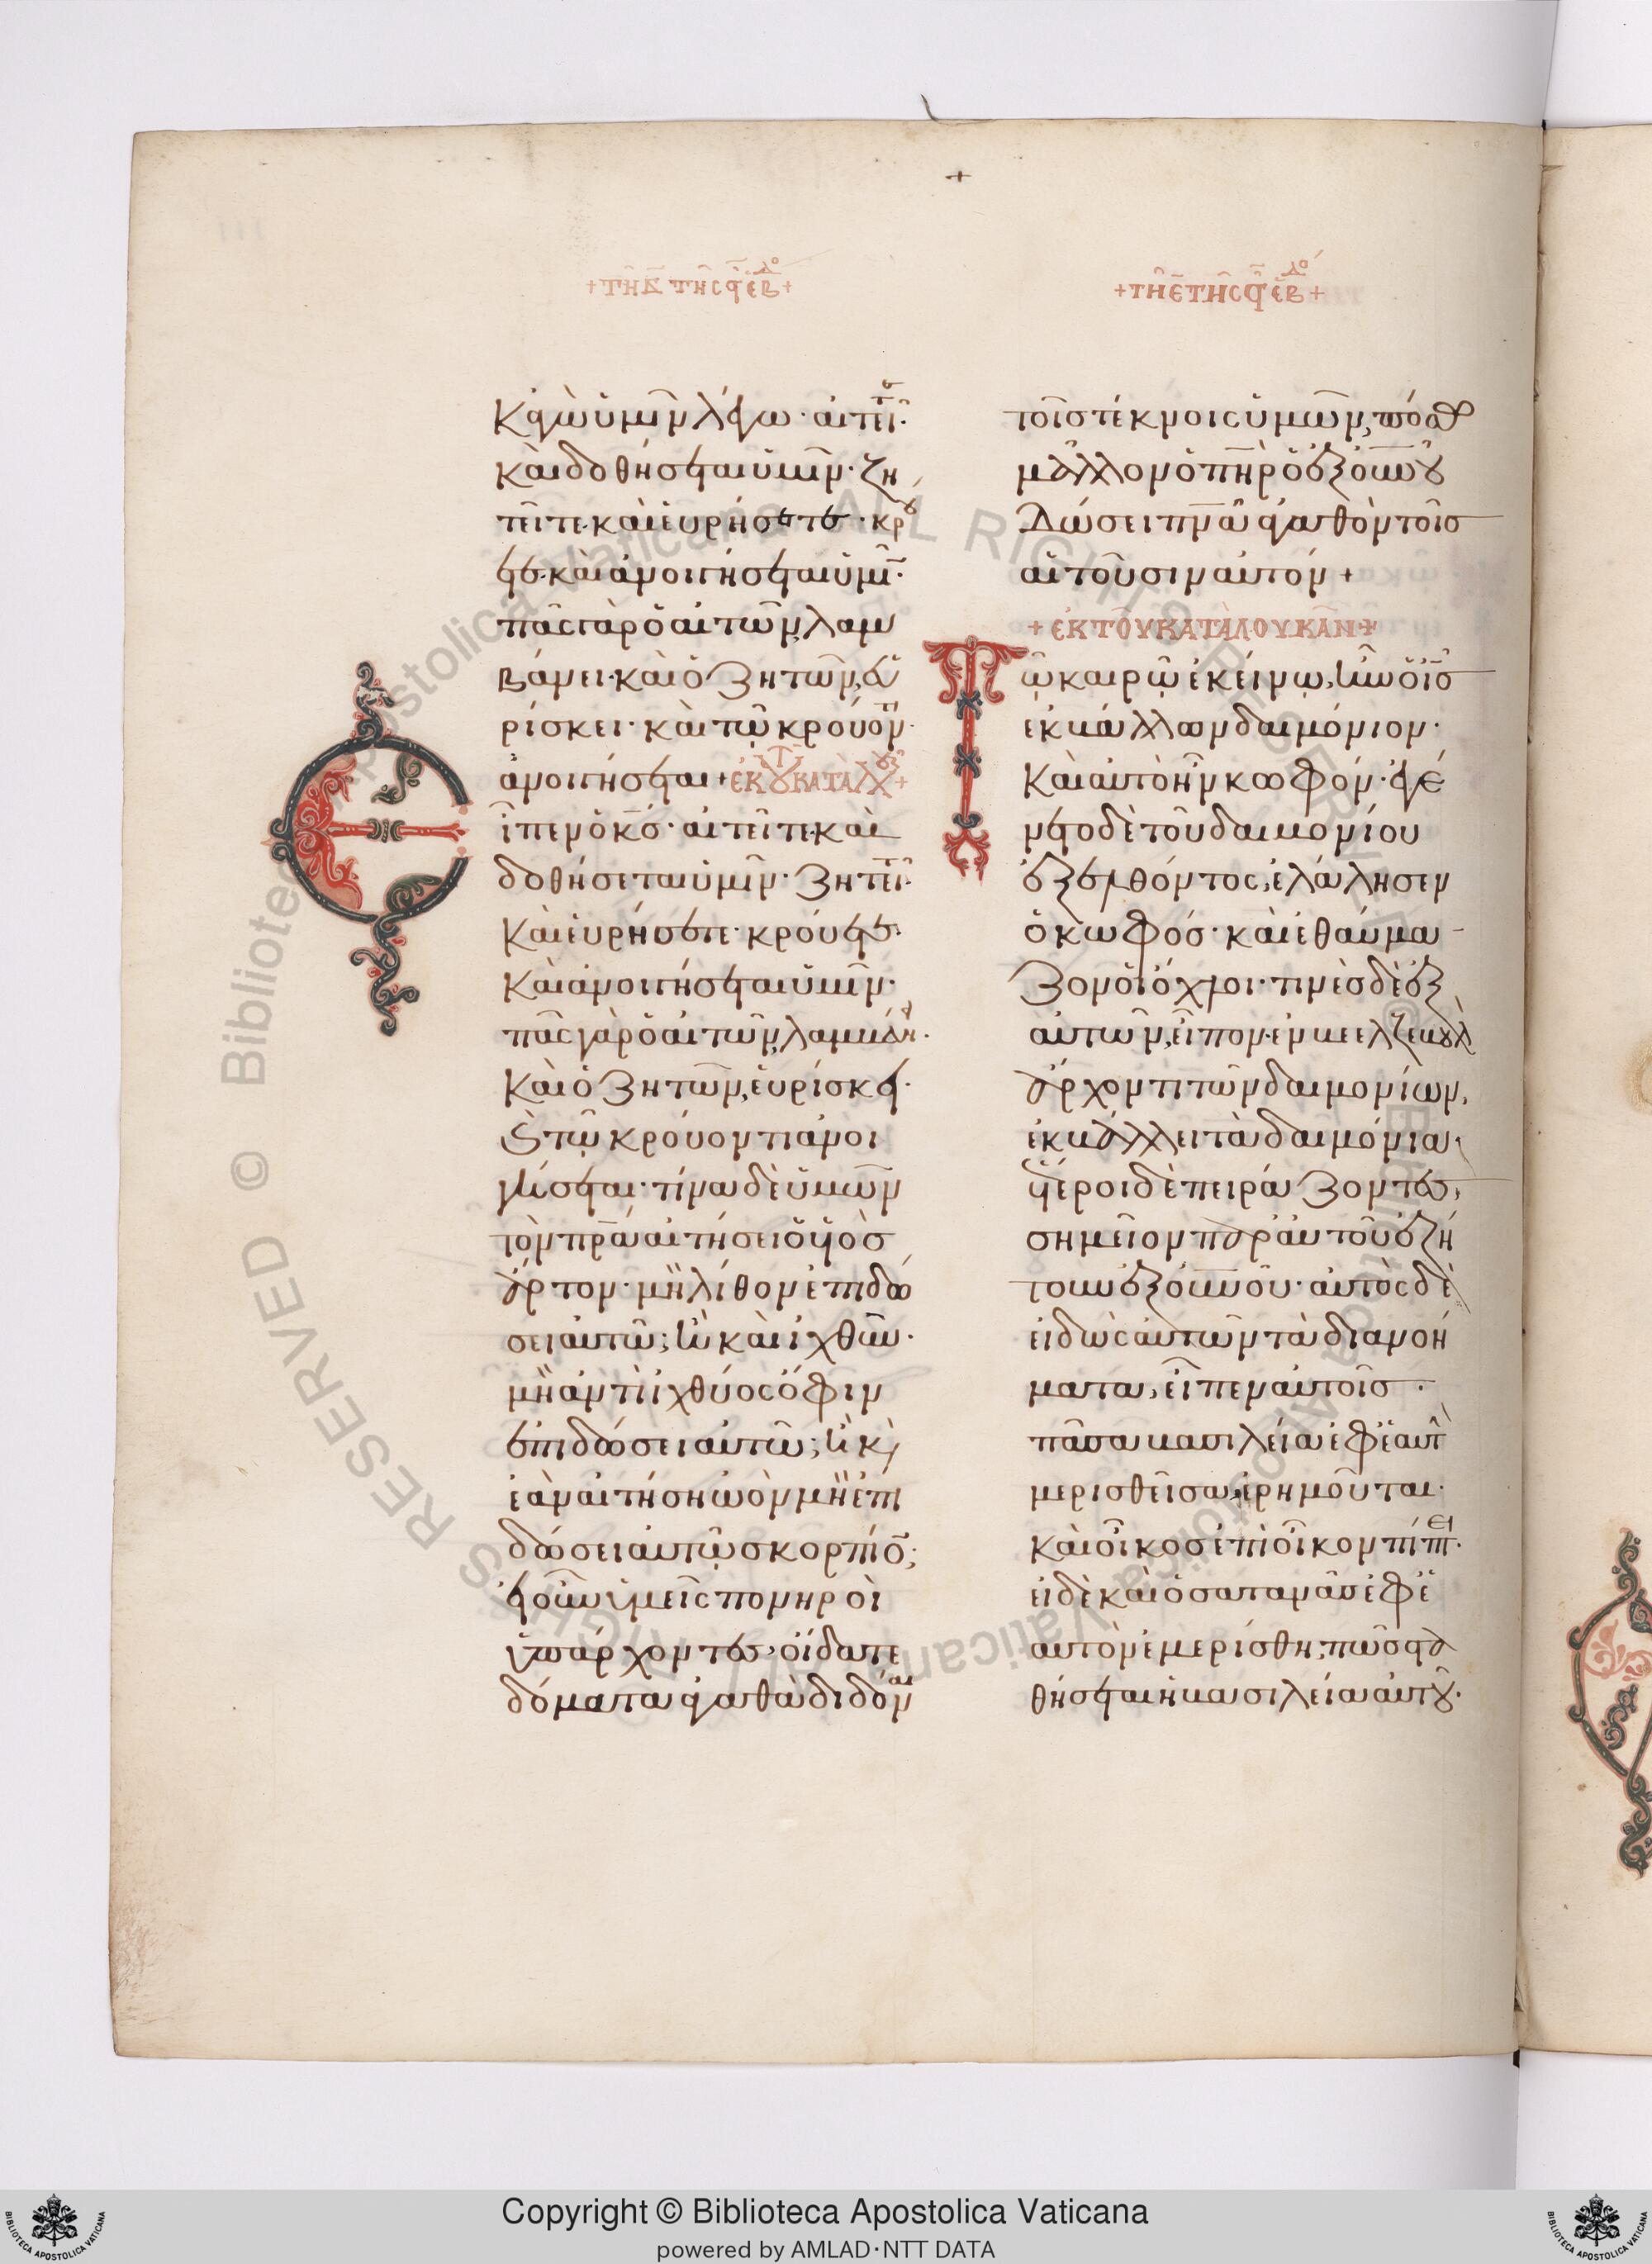 +
+τῆ δ̅ τῆς ς̅ ἑβδο+
κἀγὼ ὑμῖν λέγω· αἰτεῖτε·
καὶ δοθήσεται ὑμῖν· ζη
τεῖτε· καὶ εὑρήσετε· κρού
ετε· καὶ ἀνοιγήσεται ὑμῖν·
πᾶς γὰρ ὁ αἰτῶν, λαμ
βάνει· καὶ ὁ ζητῶν, εὑ
ρίσκει· καὶ τῷ κρούοντι
ἀνοιγήσεται + ἐκ τοῦ κατὰ λουκ +
Εἶπεν ὁ κ̅ς̅· αἰτεῖτε καὶ
δοθήσεται ὑμῖν· ζητεῖτε·
καὶ εὑρήσετε· κρούετε·
καὶ ἀνοιγήσεται ὑμῖν·
πᾶς γὰρ ὁ αἰτῶν, λαμβάνει·
καὶ ὁ ζητῶν, εὑρίσκει·
καὶ τῷ κρούοντι ἀνοι
γήσεται· τίνα δὲ ὑμῶν
τὸν π̅ρ̅α̅ αἰτήσει ὁ υἱὸς
ἄρτον· μὴ λίθον ἐπιδώ
σει αὐτῷ; ἢ καὶ ἰχθῦν·
μὴ ἀντὶ ἰχθύος ὄφιν
ἐπιδώσει αὐτῷ; ἢ κ,
ἐὰν αἰτήση ὠὸν μὴ ἐπι
δώσει αὐτῷ σκορπίον;
εἰ οὖν ὑμεῖς πονηροὶ
ὑπάρχοντες, οἴδατε
δόματα ἀγαθὰ διδόναι
+τῆ ε̅ τῆς ς̅ ἑβδο+
τοῖς τέκνοις ὑμῶν, πόσω
μᾶλλον ὁ π̅η̅ρ̅ ὁ ἐξ ο̅υ̅νου
δώσει π̅ν̅α̅ ἀγαθὸν τοῖς
αἰτοῦσιν αὐτόν +
+ ἐκ τοῦ κατὰ λουκᾶν +
Τῷ καιρῷ ἐκείνῳ, ἦν ὁ ι̅ς̅
ἐκβάλλων δαιμόνιον·
καὶ αὐτὸ ἦν κωφόν· ἐγέ
νετο δὲ τοῦ δαιμονίου
ἐξελθόντος, ἐλάλησεν
ὁ κωφός· καὶ ἐθαύμα
ζον οἱ ὄχλοι· τινὲς δὲ ἐξ
αὐτῶν, εἶπον· ἐν βεελζεβοὺλ
ἄρχοντι τῶν δαιμονίων,
ἐκβάλλει τὰ δαιμόνια·
ἕτεροι δὲ πειράζοντες,
σημεῖον παρ' αὐτοῦ ἐζή
τουν ἐξ ο̅υ̅νοῦ· αὐτὸς δὲ
εἰδὼς αὐτῶν τὰ διανοή
ματα, εἶπεν αὐτοῖς·
πᾶσα βασιλεία ἐφ' ἑαυτὴν
μερισθεῖσα, ἐρημοῦται·
καὶ οἶκος ἐπὶ οἶκον πίπτει·
εἰ δὲ καὶ ὁ σατανᾶς ἐφ' ἑ
αυτὸν ἐμερίσθη, πῶς στα
θήσεται ἡ βασιλεία αὐτοῦ·
© Biblioteca Apostolica Vaticana ALL RIGHTS RESERVED
Copyright © Biblioteca Apostolica Vaticana
powered by AMLAD·NTT DATA
BIBLIOTECA APOSTOLICA VATICANA
BIBLIOTECA APOSTOLICA VATICANA